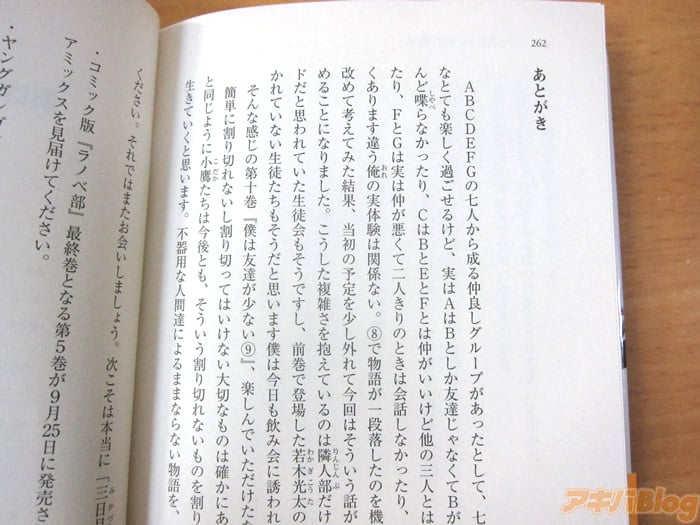 262
あとがき
ABCDEFGの七人から成る仲良しグループがあったとして、七
なとても楽しく過ごせるけど、実はAはBとしか友達じゃなくてBが
んど喋らなかったり、CはBとEとFとは仲がいいけど他の三人とは
たり、FとGは実は仲が悪くて二人きりのときは会話しなかったり、
くあります違う俺の実体験は関係ない。⑧で物語が一段落したのを機
改めて考えてみた結果、当初の予定を少し外れて今回はそういう話が
めることになりました。こうした複雑さを抱えているのは隣人部だけ
ドだと思われていた生徒会もそうですし、前巻で登場した若木光太の
かれていない生徒たちもそうだと思います僕は今日も飲み会に誘われ
そんな感じの第十巻『僕は友達が少ない⑨』、楽しんでいただけた
簡単に割り切れないし割り切ってはいけない大切なものは確かにあ
と同じように小鷹たちは今後とも、そういう割り切れないものを割り
生きていくと思います。不器用な人間達によるままならない物語を、
ください。それではまたお会いしましょう。次こそは本当に「三日月
・コミック版『ラノベ部』最終巻となる第5巻が9月25日に発売さ
アミックスを見届けてください。
・ヤングガンガ
アキバBlog